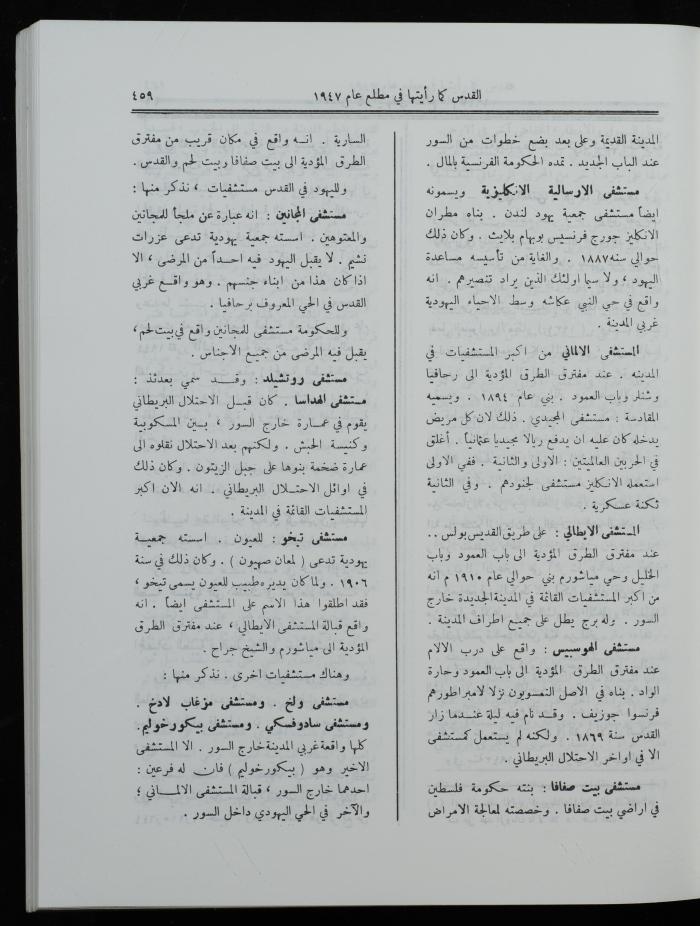 القدس كما رأيتها في مطلع عام ١٩٤٧
٤٥٩
المدينة القديمة وعلى بعد بضع خطوات من السور
عند الباب الجديد . تمده الحكومة الفرنسية بالمال .
مستشفى الارسالية الانكليزية ويسمونه
ايضاً مستشفى جمعية يهود لندن . بناه مطران
الانكليز جورج فرنسيس بوبهام بلايث . وكان ذلك
حوالي سنه ١٨٨٧ . والغاية من تأسيسه مساعدة
اليهود ، ولا سيما اولئك الذين يراد تنصيرهم . انه
واقع في حي النبي عكاشه وسط الاحياء اليهودية
غربي المدينة .
المستشفى الالماني من اكبر المستشفيات في
المدينه . عند مفترق الطرق المؤدية الى رحافيا
وشنلر وباب العمود . بني عام ١٨٩٤ . ويسميه
المقادسة : مستشفى المجيدي . ذلك لان كل مريض
يدخله كان عليه ان يدفع ريالا مجيديا عثمانياً . أغلق
في الحربين العالميتين : الاولى والثانية . ففي الاولى
استعمله الانكليز مستشفى لجنودهم . وفي الثانية
ثكنة عسكرية .
المستشفى الايطالي : على طريق القديس بولس . .
عند مفترق الطرق المؤدية الى باب العمود وباب
الخليل وحي مياشورم بني حوالي عام ١٩١٠ م انه
من اكبر المستشفيات القائمة في المدينة الجديدة خارج
السور . وله برج يطل على جميع اطراف المدينة .
مستشفى الهوسبيس : واقع على درب الالام
عند مفترق الطرق المؤدية الى باب العمود وحارة
الواد . بناه في الاصل النمسويون نزلا لامبراطورهم
فرنسوا جوزيف . وقد نام فيه ليلة عندما زار
القدس سنة ١٨٦٩ . ولكنه لم يستعمل كمستشفى
الا في اواخر الاحتلال البريطاني .
مستشفى بيت صفافا : بنته حكومة فلسطين
في اراضي بيت صفافا . وخصصته لمعالجة الامراض
السارية . انه واقع في مكان قريب من مفترق
الطرق المؤدية الى بيت صفافا وبيت لحم والقدس .
ولليهود في القدس مستشفيات ، نذكر منها :
مستشفى المجانين : انه عبارة عن ملجأ للمجانين
والمعتوهين . اسسته جمعية يهودية تدعى عزرات
نشيم . لا يقبل اليهود فيه احداً من المرضى ، الا
اذا كان هذا من ابناء جنسهم . وهو واقع غربي
القدس في الحي المعروف برحافيا .
وللحكومة مستشفى للمجانين واقع في بيت لحم ،
يقبل فيه المرضى من جميع الأجناس .
مستشفى روتشيلد : وقد سمي بعدئذ :
مستشفى الهداسا . كان قبل الاحتلال البريطاني
يقوم في عمارة خارج السور ، بين المسكوبية
وكنيسة الحبش . ولكنهم بعد الاحتلال نقلوه الى
عمارة ضخمة بنوها على جبل الزيتون . وكان ذلك
في اوائل الاحتلال البريطاني . انه الان اكبر
المستشفيات القائمة في المدينة .
مستشفى تيخو : للعيون . اسسته جمعية
يهودية تدعى ( لمعان صهيون ) . وكان ذلك في سنة
١٩٠٦ . ولما كان يديره طبيب للعيون يسمى تيخو ،
فقد اطلقوا هذا الاسم على المستشفى ايضاً . انه
واقع قبالة المستشفى الايطالي ، عند مفترق الطرق
المؤدية الى مياشورم والشيخ جراح .
وهناك مستشفيات اخرى . نذكر منها :
مستشفى ولخ . ومستشفى مزغاب لادخ .
ومستشفى سادوفسكي . ومستشفى بيكورخوليم .
كلها واقعة غربي المدينة خارج السور . الا المستشفى
الاخير وهو ( بيكورخوليم ) فان له فرعين :
احدهما خارج السور ، قبالة المستشفى الالماني ؛
والآخر في الحي اليهودي داخل السور .